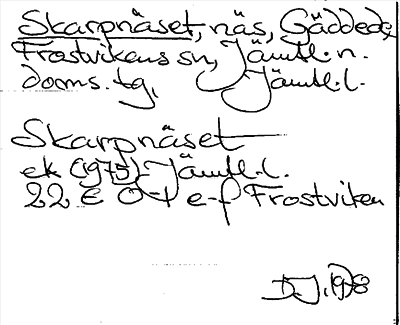 Skarpnäset, näs, Gäddede,
Frostvikens sn, Jämtl. n.
doms. tg, Jämtl. l.
Skarpnäset
ek (1975) Jämtl. l.
22 E 0-1 e-f Frostviken
D.J. 1978